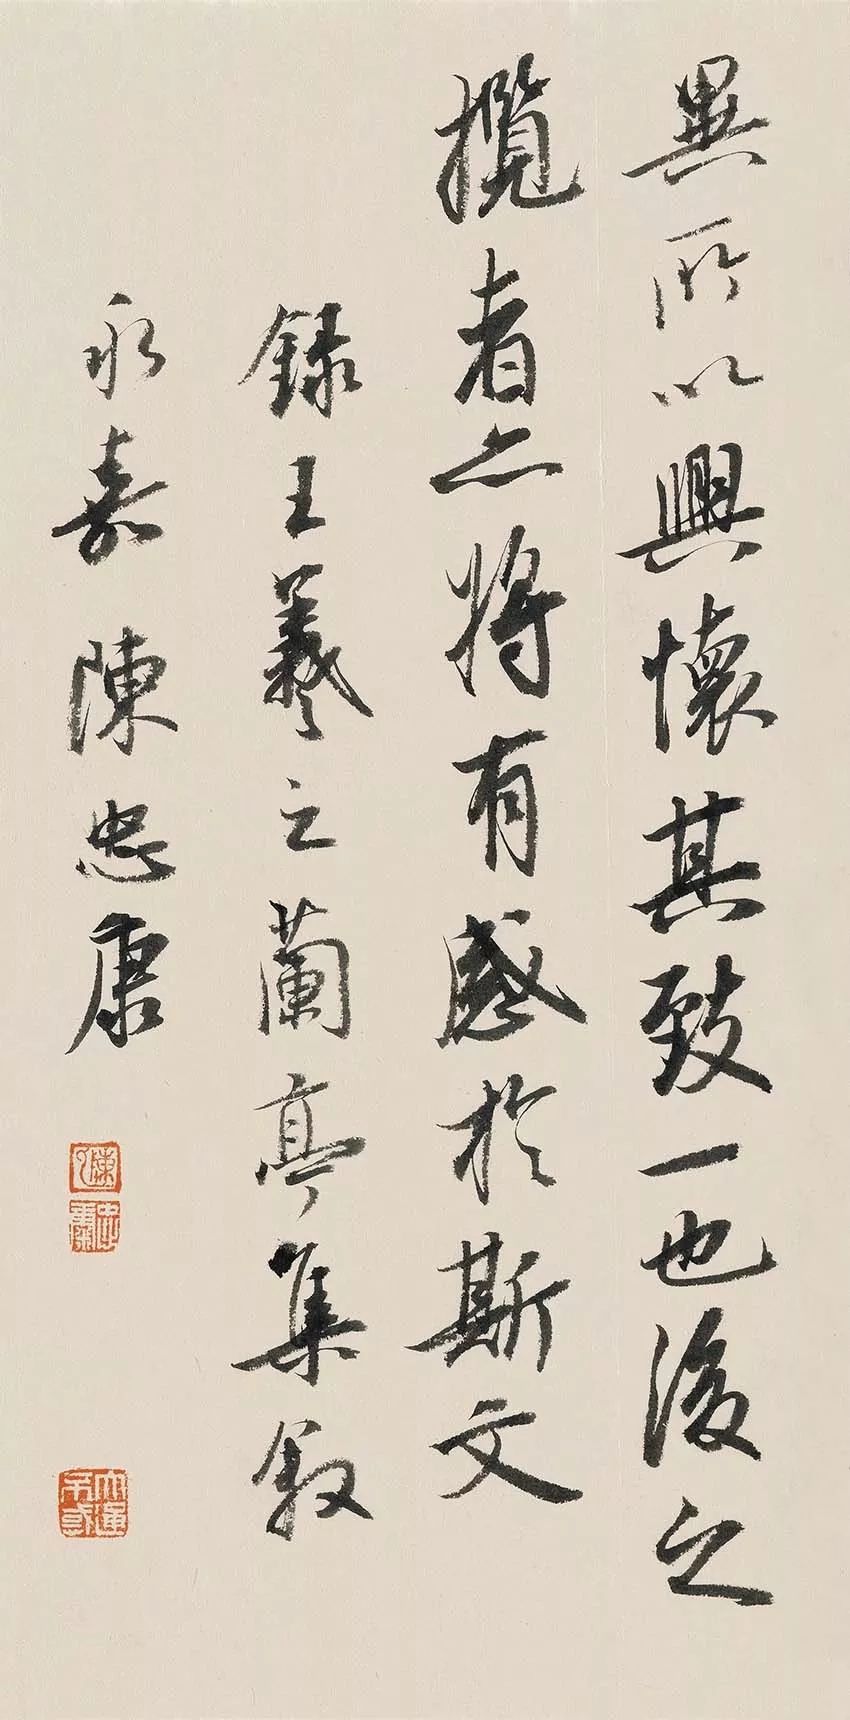 異所以興懷其致一也後之
攬者亦將有感於斯文
錄王羲之蘭亭集敘
永嘉陳忠康
陳
忠康